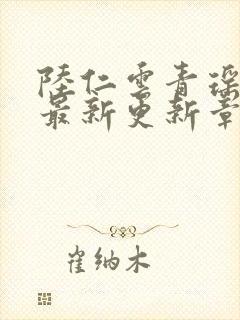 陸仁雲青瑶
最新更新章
崔纳木